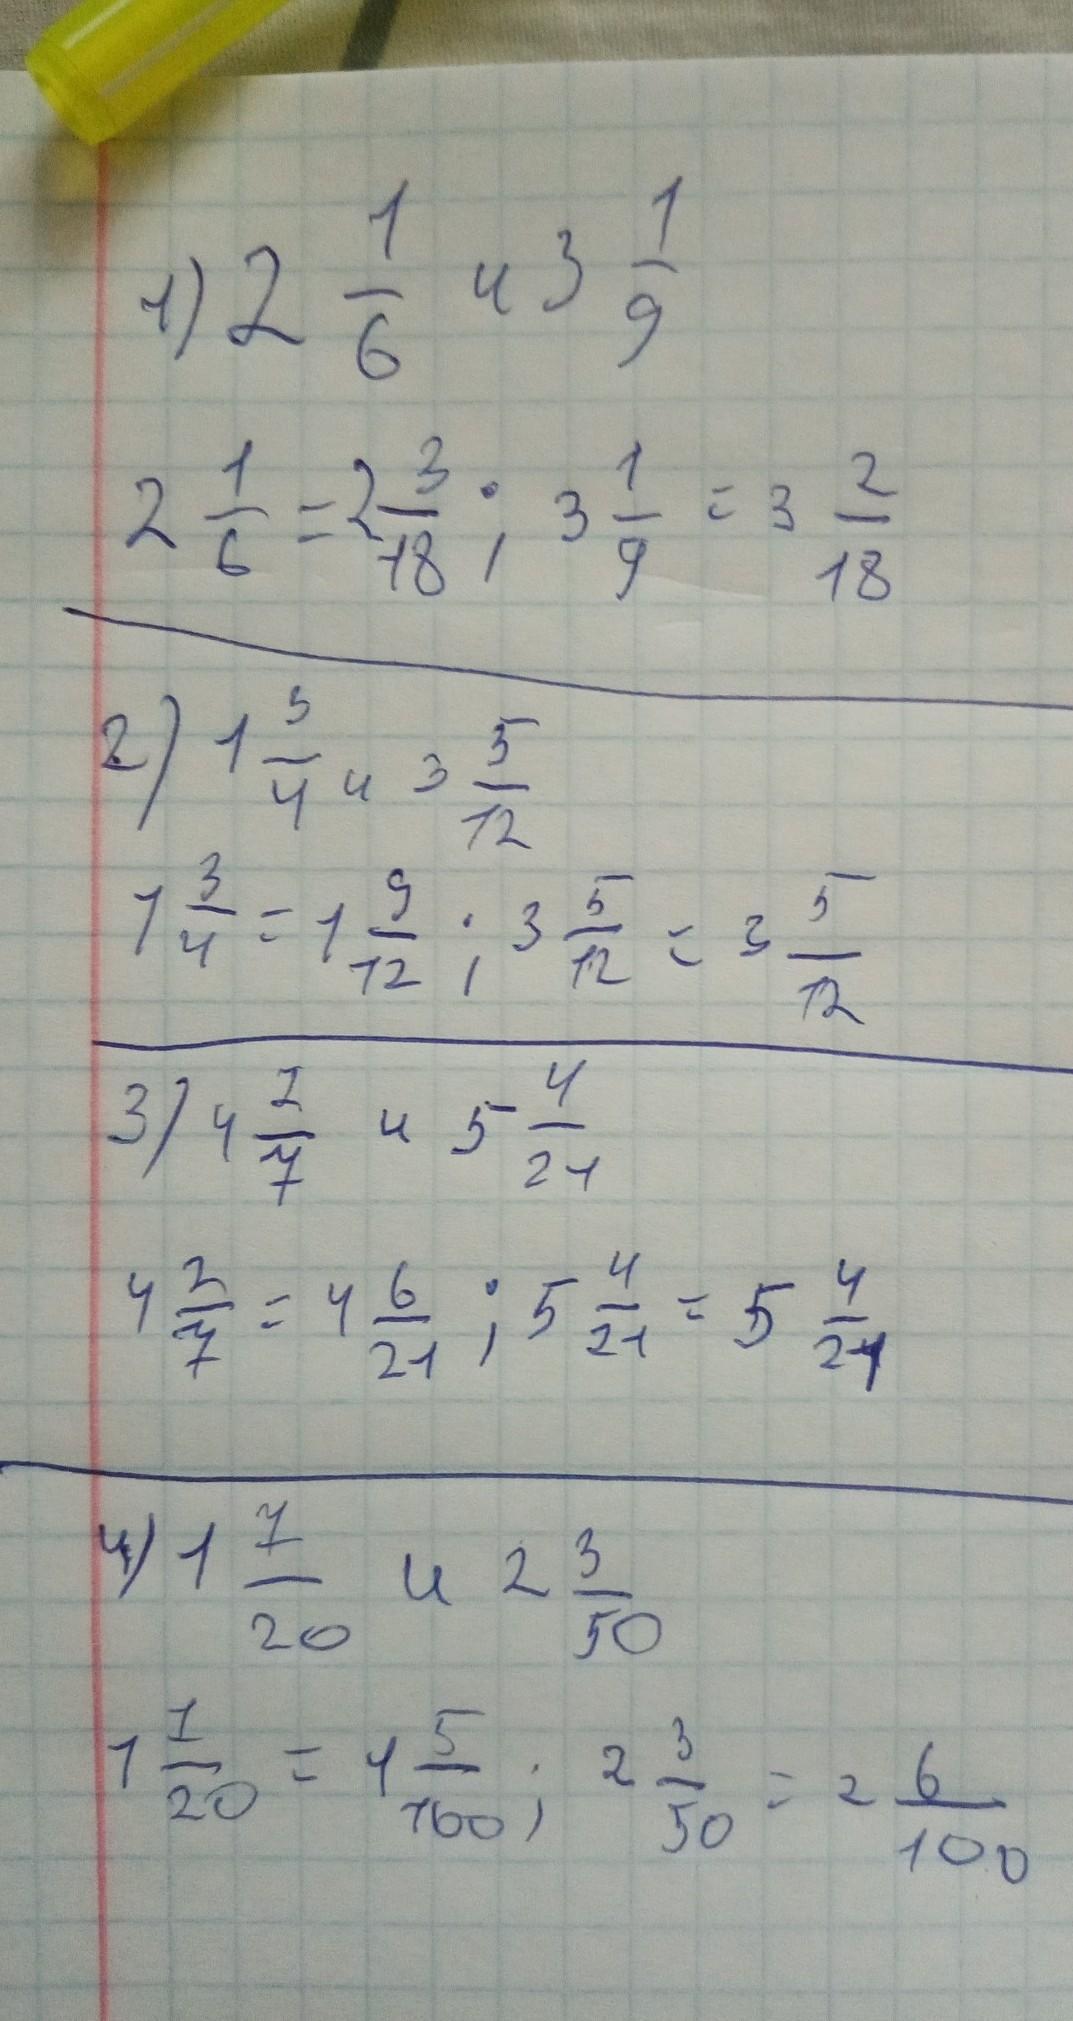 1) 2 1/6 и 3 1/9
2 1/6 = 2 3/18 ; 3 1/9 = 3 2/18
2) 1 3/4 и 3 5/12
1 3/4 = 1 9/12 ; 3 5/12 = 3 5/12
3) 4 2/7 и 5 4/21
4 2/7 = 4 6/21 ; 5 4/21 = 5 4/21
4) 1 7/20 и 2 3/50
1 1/20 = 1 5/100 ; 2 3/50 = 2 6/100